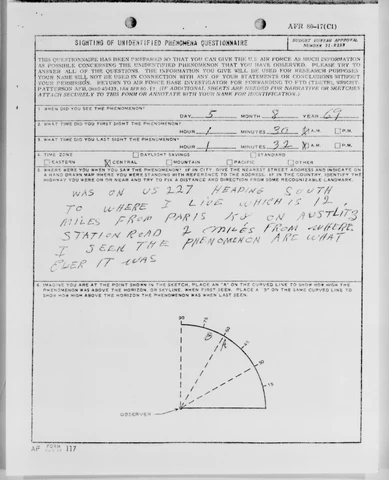 AFR 80-17(C1)
SIGHTING OF UNIDENTIFIED PHENOMENA QUESTIONNAIRE
BUDGET BUREAU APPROVAL
NUMBER 21-R258
THIS QUESTIONNAIRE HAS BEEN PREPARED SO THAT YOU CAN GIVE THE U.S. AIR FORCE AS MUCH INFORMATION
AS POSSIBLE CONCERNING THE UNIDENTIFIED PHENOMENON THAT YOU HAVE OBSERVED. PLEASE TRY TO
ANSWER ALL OF THE QUESTIONS. THE INFORMATION YOU GIVE WILL BE USED FOR RESEARCH PURPOSES.
YOUR NAME WILL NOT BE USED IN CONNECTION WITH ANY OF YOUR STATEMENTS OR CONCLUSIONS WITHOUT
YOUR PERMISSION. RETURN TO AIR FORCE BASE INVESTIGATOR FOR FORWARDING TO FTD (TDETR), WRIGHT-
PATTERSON AFB, OHIO 45433, IAW AFR 80-17. (IF ADDITIONAL SHEETS ARE NEEDED FOR NARRATIVE OR SKETCHES
ATTACH SECURELY TO THIS FORM OR ANNOTATE WITH YOUR NAME FOR IDENTIFICATION.)
1. WHEN DID YOU SEE THE PHENOMENON?
DAY 5 MONTH 8 YEAR 69
2. WHAT TIME DID YOU FIRST SIGHT THE PHENOMENON?
HOUR 1 MINUTES 30 A.M. P.M.
3. WHAT TIME DID YOU LAST SIGHT THE PHENOMENON?
HOUR 1 MINUTES 32 A.M. P.M.
4. TIME ZONE DAYLIGHT SAVINGS STANDARD
EASTERN CENTRAL MOUNTAIN PACIFIC OTHER
5. WHERE WERE YOU WHEN YOU SAW THE PHENOMENON? IF IN CITY, GIVE THE NEAREST STREET ADDRESS AND INDICATE ON
A HAND DRAWN MAP WHERE YOU WERE STANDING WITH REFERENCE TO THE ADDRESS. IF IN THE COUNTRY, IDENTIFY THE
HIGHWAY YOU WERE ON OR NEAR AND TRY TO FIX A DISTANCE AND DIRECTION FROM SOME RECOGNIZABLE LANDMARK.
WAS ON US 227 HEADING SOUTH
TO WHERE I LIVE WHICH IS 12
MILES FROM PARIS KY ON AUSTLITZ
STATION ROAD 2 MILES FROM WHERE
I SEEN THE PHENOMENON ARE WHAT
EVER IT WAS
6. IMAGINE YOU ARE AT THE POINT SHOWN IN THE SKETCH. PLACE AN "A" ON THE CURVED LINE TO SHOW HOW HIGH THE
PHENOMENON WAS ABOVE THE HORIZON, OR SKYLINE, WHEN FIRST SEEN. PLACE A "B" ON THE SAME CURVED LINE TO
SHOW HOW HIGH ABOVE THE HORIZON THE PHENOMENON WAS WHEN LAST SEEN.
90
30
15
OBSERVER
AF FORM 117